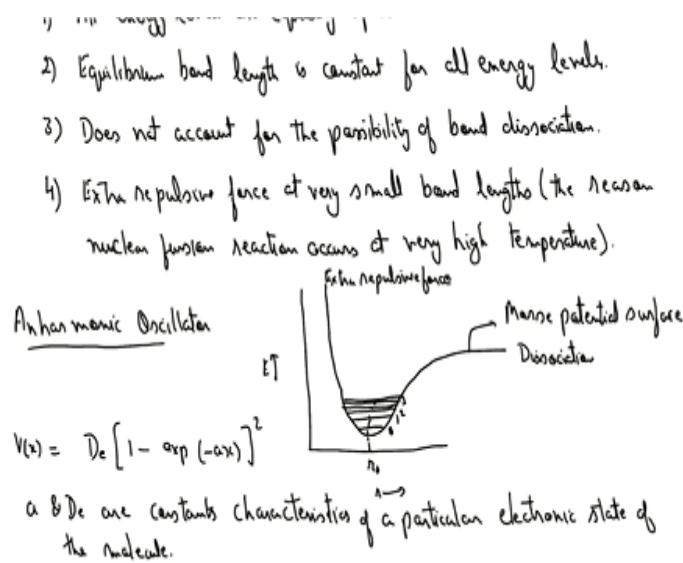 2) Equilibrium bond length is constant for all energy levels.
3) Does not account for the possibility of bond dissociation.
4) Extra repulsive force at very small bond lengths (the reason
nuclear fusion reaction occurs at very high temperature).
Extra repulsive force
Anharmonic Oscillator
Morse potential surface
Dissociation
E↑
0 1 2
V(x) = De [1 - exp (-ax)]²
r₀
r→
a & De are constants characteristics of a particular electronic state of
the molecule.